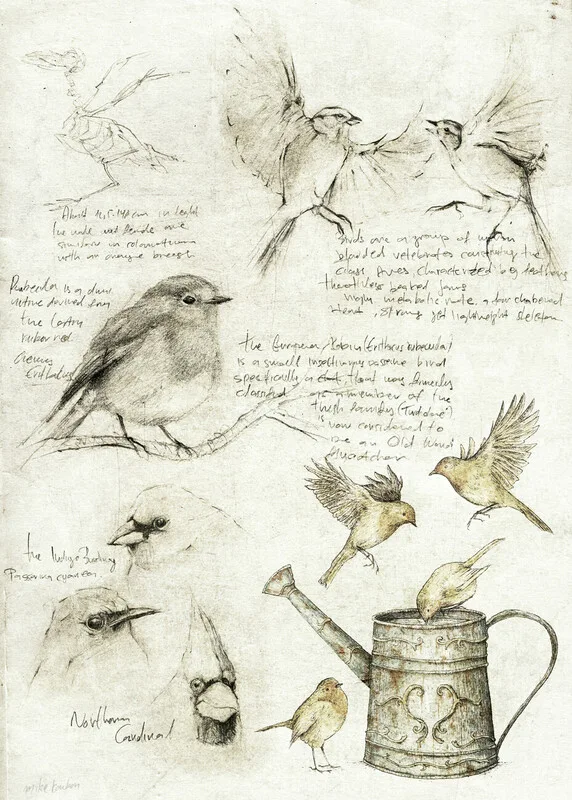 About 12.5-14cm in length
the male and female are
similar in colouration
with an orange breast
Birds are a group of warm
blooded vertebrates constituting the
class Aves characterized by feathers
toothless beaked jaws
high metabolic rate, a four chambered
heart, strong yet lightweight skeleton
Rubecula is a
derived from
the Latin
ruber red.
Genus
Erithacus
the European Robin (Erithacus rubecula)
is a small insectivorous passerine bird
specifically a chat that was formerly
classified as a member of the
thrush family (Turdidae)
is now considered to
be an Old World
flycatcher
the Indigo Bunting
Passerina cyanea
Northern
Cardinal